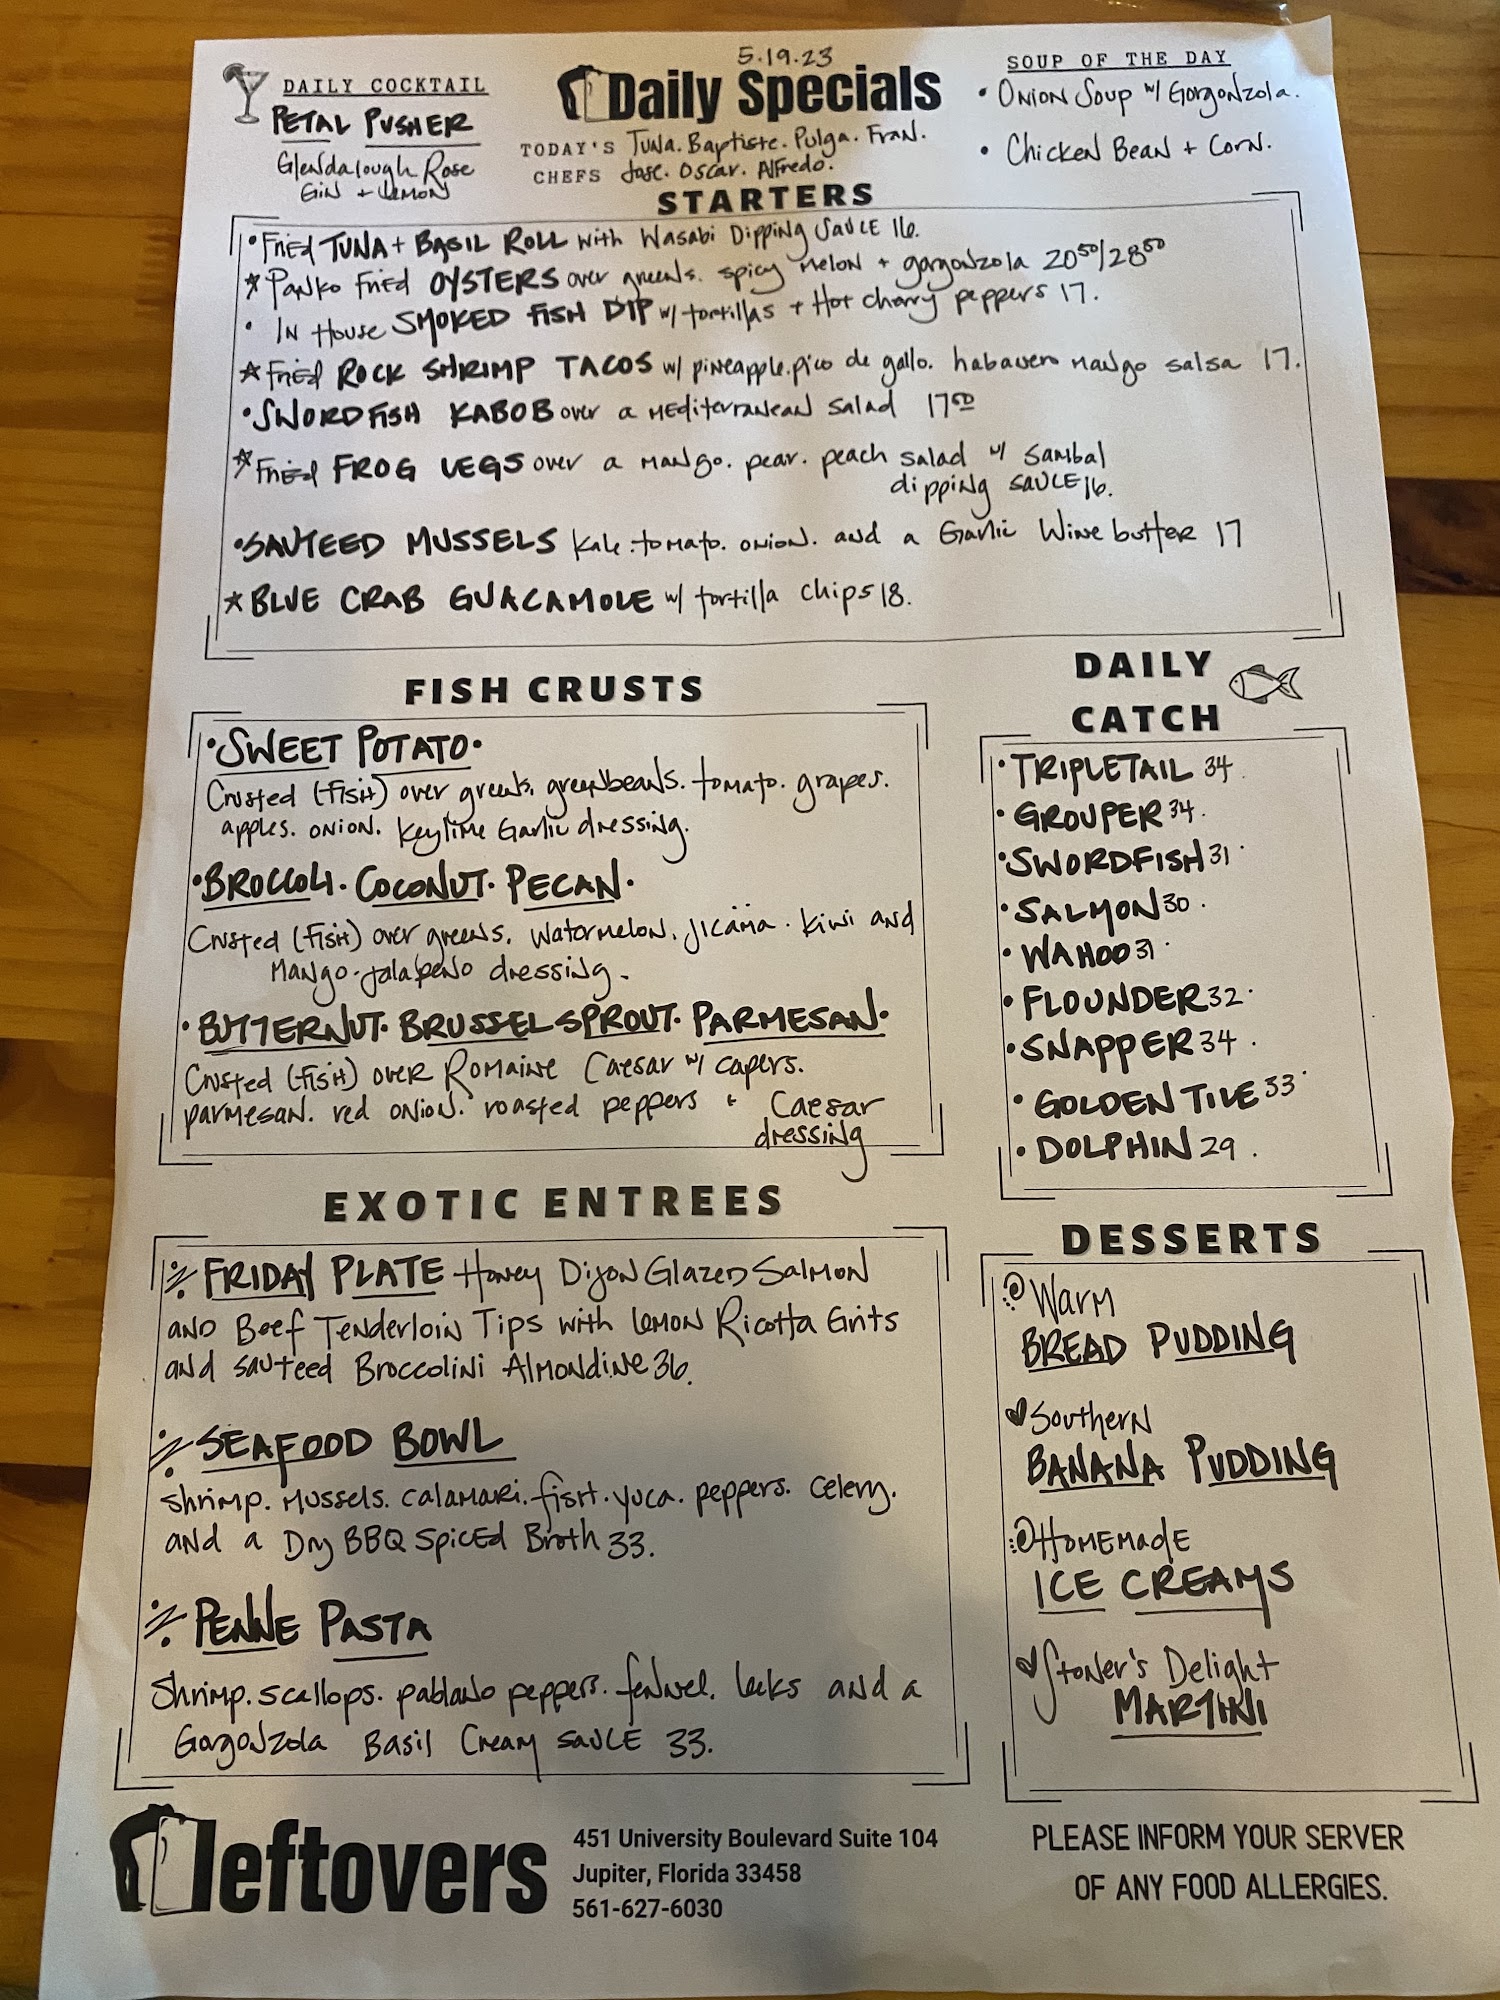 5.19.23
DAILY COCKTAIL
PETAL PUSHER
Glendalough Rose
Gin + Lemon
Daily Specials
TODAY'S CHEFS
Tuna. Baptiste. Pulga. Fran.
Jose. Oscar. Alfredo.
SOUP OF THE DAY
• Onion Soup w/ Gorgonzola.
• Chicken Bean + Corn.
STARTERS
• Fried TUNA + BASIL ROLL with Wasabi Dipping Sauce 16.
* Panko Fried OYSTERS over greens. spicy melon + gorgonzola 20⁵⁰/28⁵⁰
• In House SMOKED FISH DIP w/ tortillas + Hot cherry peppers 17.
* Fried ROCK SHRIMP TACOS w/ pineapple.pico de gallo. habanero mango salsa 17.
• SWORDFISH KABOB over a Mediterranean Salad 17⁵⁰
* Fried FROG LEGS over a mango. pear. peach salad w/ sambal
dipping sauce 16.
• SAUTEED MUSSELS kale.tomato. onion. and a Garlic Wine butter 17
* BLUE CRAB GUACAMOLE w/ tortilla chips 18.
FISH CRUSTS
• SWEET POTATO •
Crusted (FISH) over greens, greenbeans. tomato. grapes.
apples. onion. Keylime Garlic dressing.
• BROCCOLI • COCONUT • PECAN •
Crusted (FISH) over greens. watermelon. jicama. kiwi and
Mango-Jalapeno dressing.
• BUTTERNUT • BRUSSEL SPROUT • PARMESAN •
Crusted (FISH) over Romaine Caesar w/ capers.
parmesan. red onion. roasted peppers + Caesar
dressing
DAILY
CATCH
• TRIPLETAIL 34.
• GROUPER 34.
• SWORDFISH 31.
• SALMON 30.
• WAHOO 31.
• FLOUNDER 32.
• SNAPPER 34.
• GOLDEN TILE 33.
• DOLPHIN 29.
EXOTIC ENTREES
FRIDAY PLATE Honey Dijon Glazed Salmon
and Beef Tenderloin Tips with Lemon Ricotta Grits
and sauteed Broccolini Almondine 36.
SEAFOOD BOWL
Shrimp. mussels. calamari. fish. yuca. peppers. celery.
and a Dry BBQ Spiced Broth 33.
PENNE PASTA
Shrimp. scallops. pablano peppers. fennel. leeks and a
Gorgonzola Basil Cream sauce 33.
DESSERTS
Warm
BREAD PUDDING
Southern
BANANA PUDDING
Homemade
ICE CREAMS
Stoner's Delight
MARTINI
leftovers
451 University Boulevard Suite 104
Jupiter, Florida 33458
561-627-6030
PLEASE INFORM YOUR SERVER
OF ANY FOOD ALLERGIES.